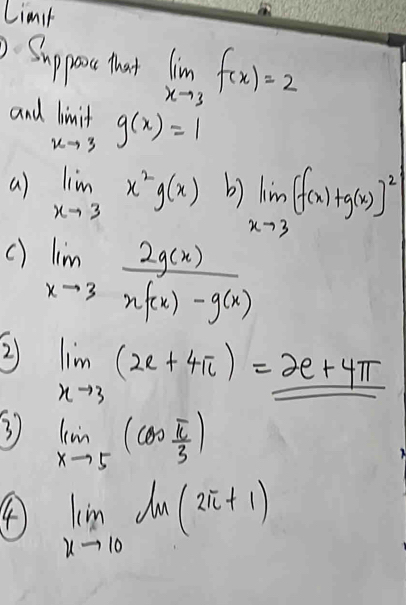 Limit
1) Suppose that lim x→3 f(x) = 2
and limit x→3 g(x) = 1
a) lim x→3 x²g(x) b) lim x→3 [f(x)+g(x)]²
c) lim x→3 2g(x) / xf(x) - g(x)
2) lim x→3 (2e + 4π) = 2e+4π
3) lim x→5 (cos π/3)
4) lim x→10 ln(2π+1)